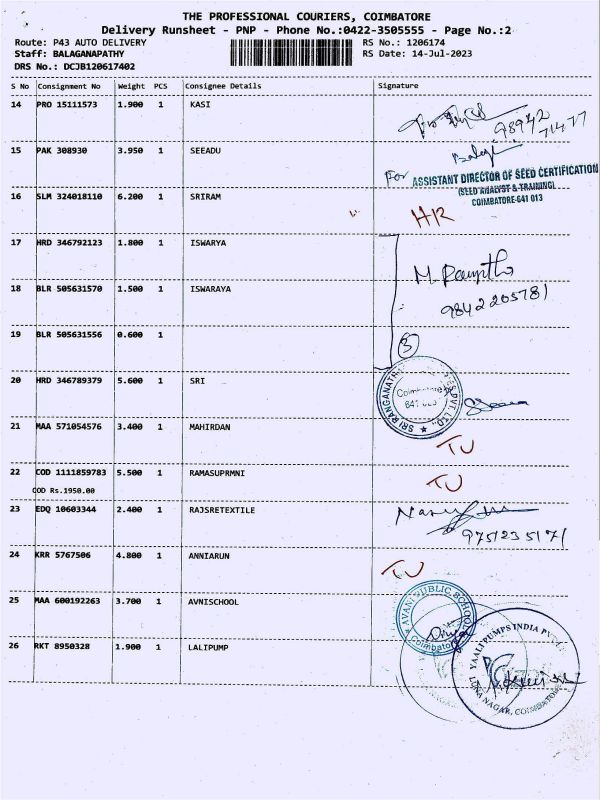 THE PROFESSIONAL COURIERS, COIMBATORE
Delivery Runsheet - PNP - Phone No.:0422-3505555 - Page No.:2
Route: P43 AUTO DELIVERY RS No.: 1206174
Staff: BALAGANAPATHY RS Date: 14-Jul-2023
DRS No.: DCJB120617402
S No Consignment No Weight PCS Consignee Details Signature
14 PRO 15111573 1.900 1 KASI
98942
71477
15 PAK 308930 3.950 1 SEEADU
Balaji
For ASSISTANT DIRECTOR OF SEED CERTIFICATION
(SEED ANALYST & TRAINING)
COIMBATORE-641 013
16 SLM 324018110 6.200 1 SRIRAM
HR
17 HRD 346792123 1.800 1 ISWARYA
M.
9842205781
18 BLR 505631570 1.500 1 ISWARAYA
19 BLR 505631556 0.600 1
3
20 HRD 346789379 5.600 1 SRI
SRI RANGANATH PVT. LTD.,
Coimbatore
641 025
21 MAA 571054576 3.400 1 MAHIRDAN
TU
22 COD 1111859783 5.500 1 RAMASUPRMNI
COD Rs.1950.00
TU
23 EDQ 10603344 2.400 1 RAJSRETEXTILE
9751235171
24 KRR 5767506 4.800 1 ANNIARUN
TU
25 MAA 600192263 3.700 1 AVNISCHOOL
AVANI PUBLIC SCHOOL
Coimbatore
26 RKT 8950328 1.900 1 LALIPUMP
YAALI PUMPS INDIA PVT
LUNA NAGAR, COIMBATORE